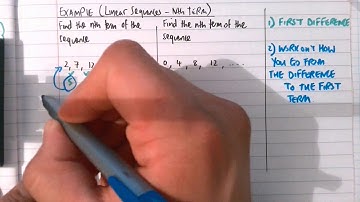 EXAMPLE (Linear Sequences - Nth Term)
Find the nth term of the sequence
2, 7, 12
5
Find the nth term of the sequence
0, 4, 8, 12, .....
1) FIRST DIFFERENCE
2) WORK OUT HOW
YOU GO FROM
THE DIFFERENCE
TO THE FIRST
TERM